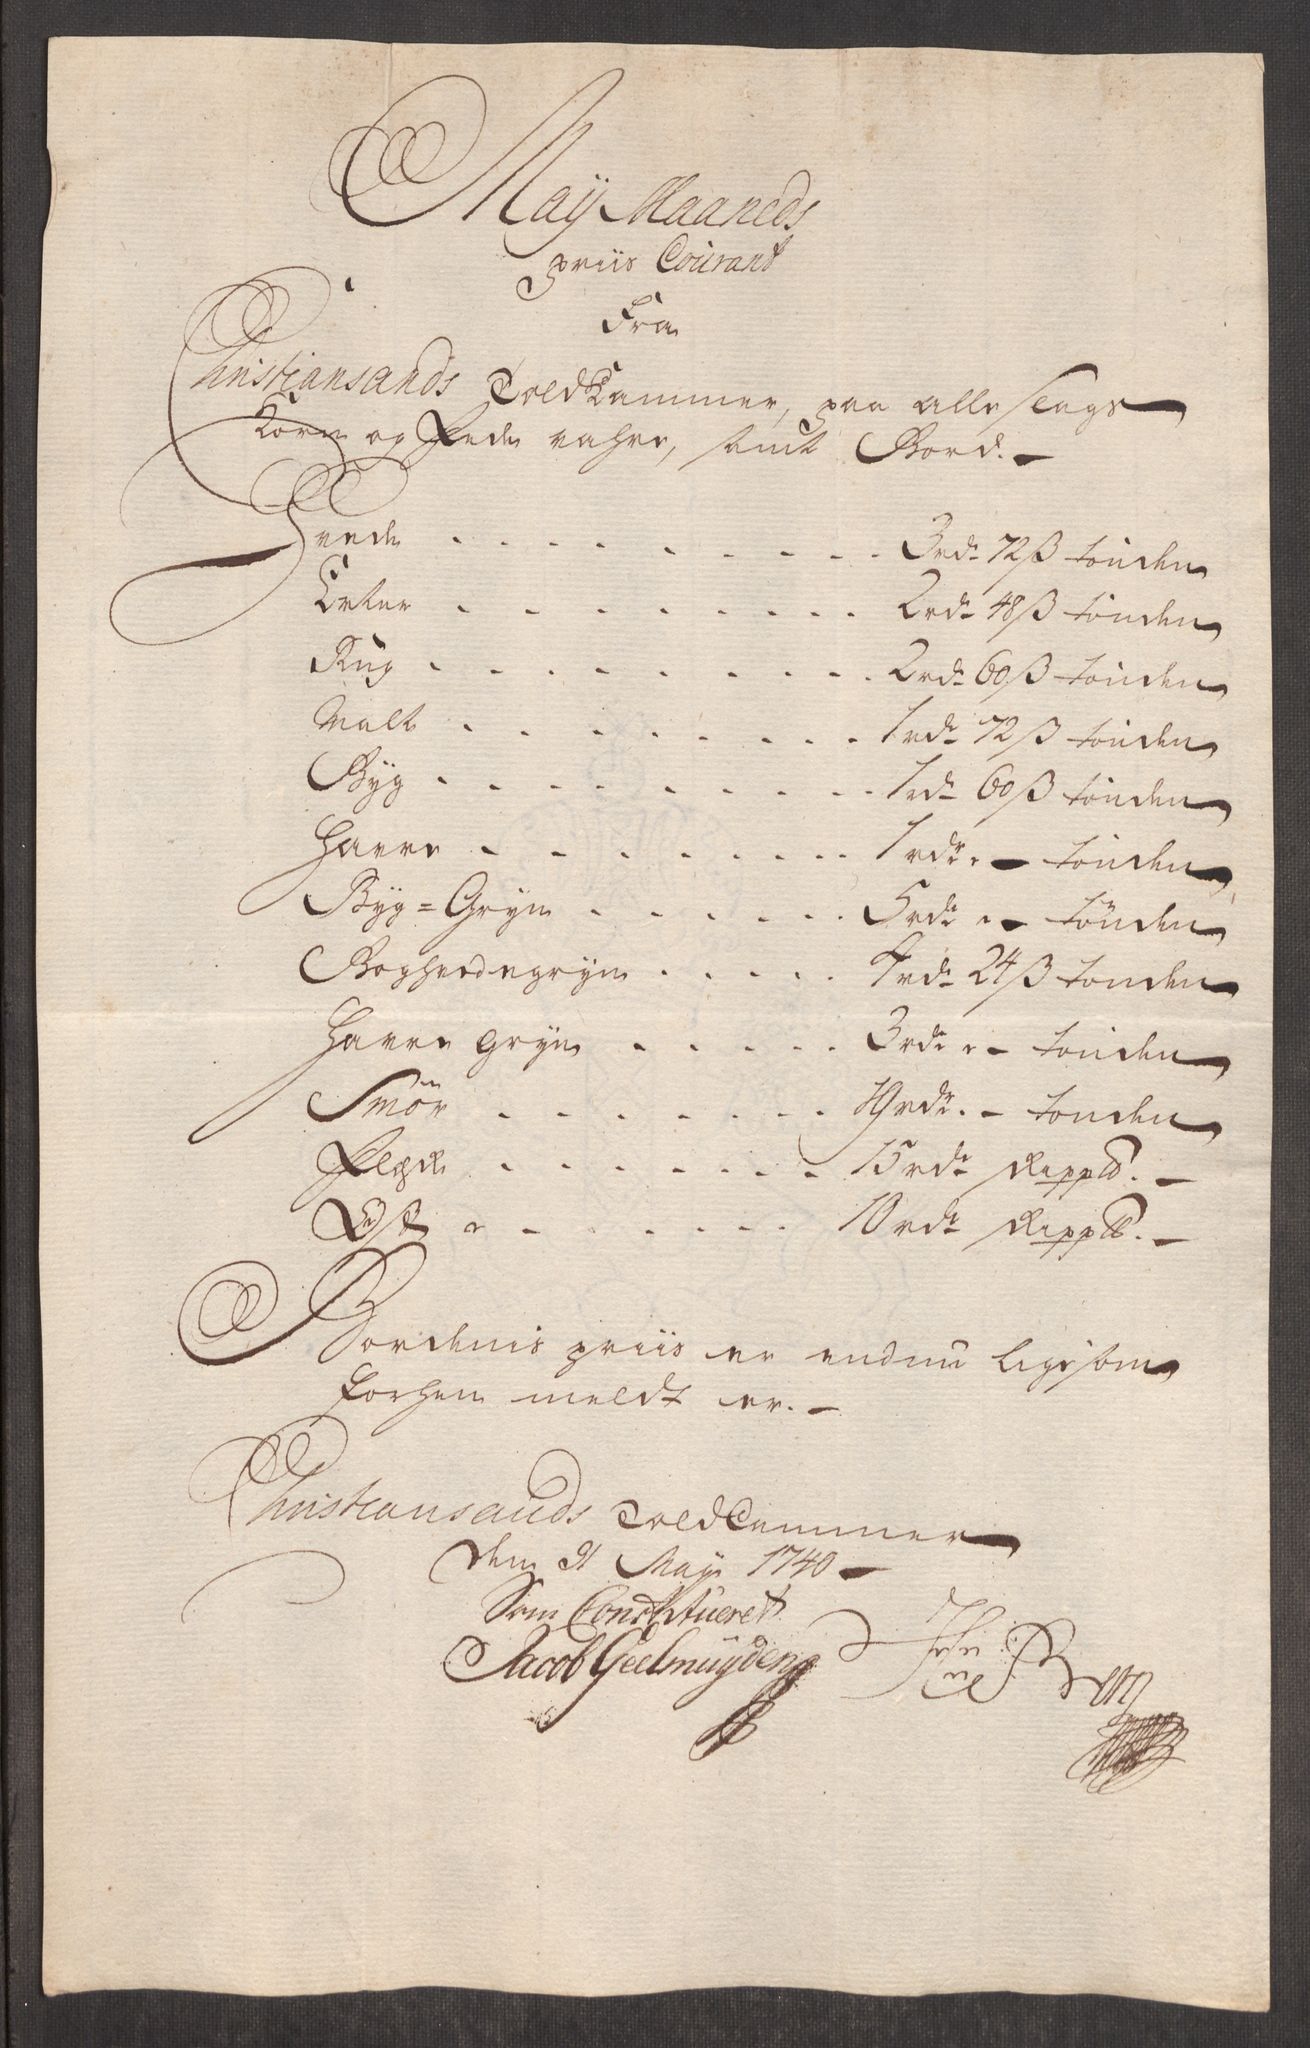 May Maaneds
priis Courant
Fra
Christiansands Told Kammer, paa alle slags
Korn og Fede vahre, samt Bord. -
Hvede - - - - - - - - - 3 rdr 72 ß tönden
Erter - - - - - - - - - 2 rdr 48 ß tönden
Rug - - - - - - - - - - 2 rdr 60 ß tönden
Malt - - - - - - - - - 1 rdr 72 ß tönden
Byg - - - - - - - - - - 1 rdr 60 ß tönden
Havre - - - - - - - - 1 rdr " - tönden
Byg = Gryn - - - - - - 5 rdr " - tönden
Boghvedegryn - - - - - 4 rdr 24 ß tönden
Havre gryn - - - - - 3 rdr " - tönden
Smör - - - - - - - - 19 rdr. - tönden
Flesk - - - - - - - 15 rdr Skippd. -
Ost - - - - - - - 10 rdr Skippd. -
Bordenis priis er endnu ligesom
forhen meldt er. -
Christiansands Told Cammer
den 31 May 1740 -
Som Constitueret
Jacob Geelmuyden